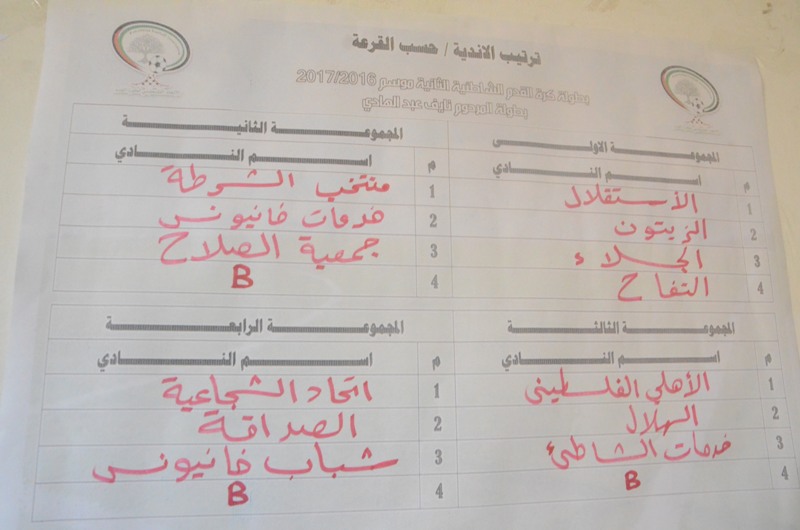 ترتيب الاندية / حسب القرعة
بطولة كرة القدم الشاطئية الثانية موسم 2017/2016
بطولة المرحوم نايف عبد الهادي
المجموعة الاولى
م اسم النادي
1 الأستقلال
2 الزيتون
3 الجلاء
4 التفاح
المجموعة الثانية
م اسم النادي
1 منتخب الشرطة
2 خدمات خانيونس
3 جمعية الصلاح
4 B
المجموعة الثالثة
م اسم النادي
1 الأهلي الفلسطيني
2 الهلال
3 خدمات الشاطئ
4 B
المجموعة الرابعة
م اسم النادي
1 اتحاد الشجاعية
2 الصداقة
3 شباب خانيونس
4 B